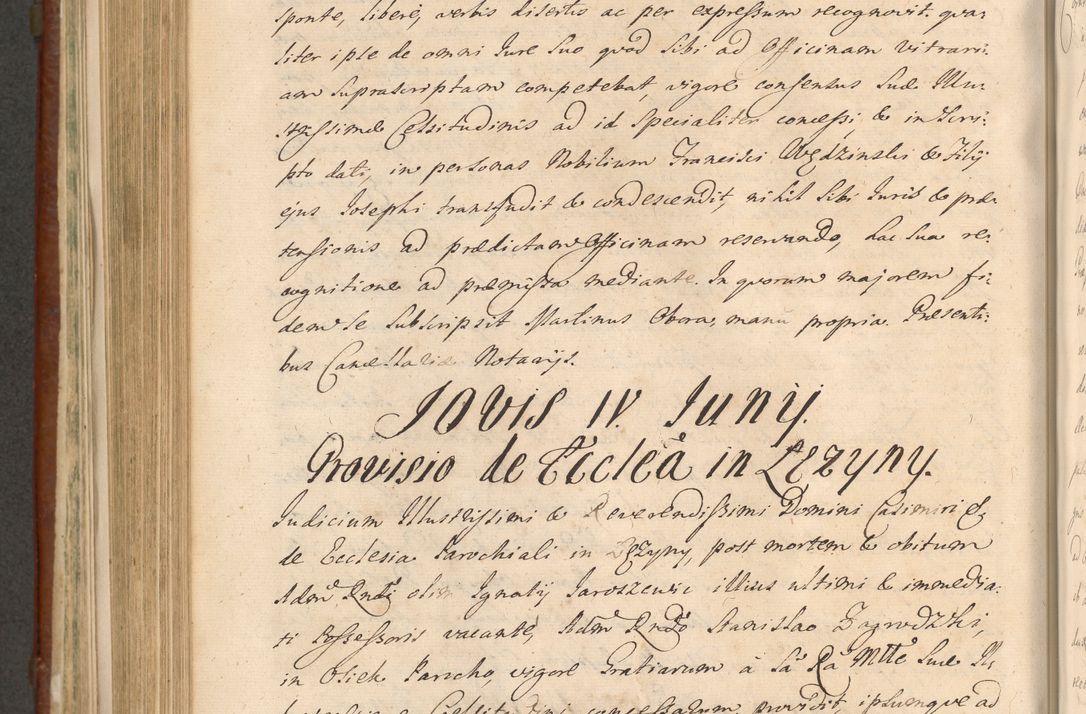 sponte, libere, verbis disertis ac per expressum recognovit. qua:
liter ipse de omni Jure suo quod sibi ad Officinam vitrari:
am suprascriptam competebat, vigore consensus Suæ Illu:
strissimæ Celsitudinis ad id specialiter concessi, & in scri:
pto dati, in personas Nobilium Francisci Wędzinski & Filij
ejus Josephi transfudit & condescendit, nihil sibi Juris & præ:
tensionis ad prædictam Officinam reservando, hac sua re:
cognitione ad præmissa mediante. In quorum majorem fi:
dem se subscripsit Martinus Obora, manu propria. Præsenti:
bus Cancellariæ Notarijs.
JOVIS IV. Junij.
Provisio de Eccleâ in Łęzyny.
Judicium Illustrissimi & Reverendissimi Domini Casimiri &
de Ecclesia Parochiali in Łęzyny, post mortem & obitum
Adm Rndi olim Ignatij Jaroszewic illius ultimi & immedia:
ti Possessoris vacante, Adm Rndo Stanislao Zagrodzki,
in Osiek Parocho, vigore Gratiarum à Sâ Râ Mtte Suæ Il:
Celsitudini concessarum providit, ipsumque ad